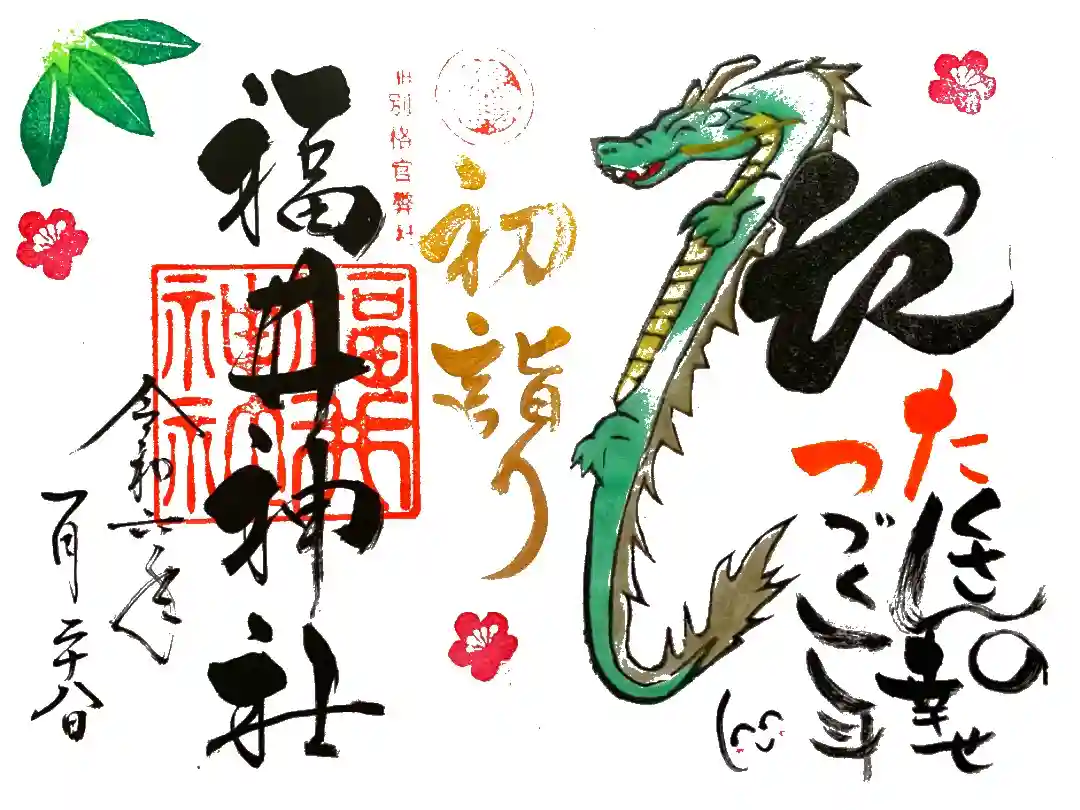 たくさんの幸せ
つづく一年
初詣り
旧別格官幣社
福井神社
福井
神社
令和六年
一月二十八日